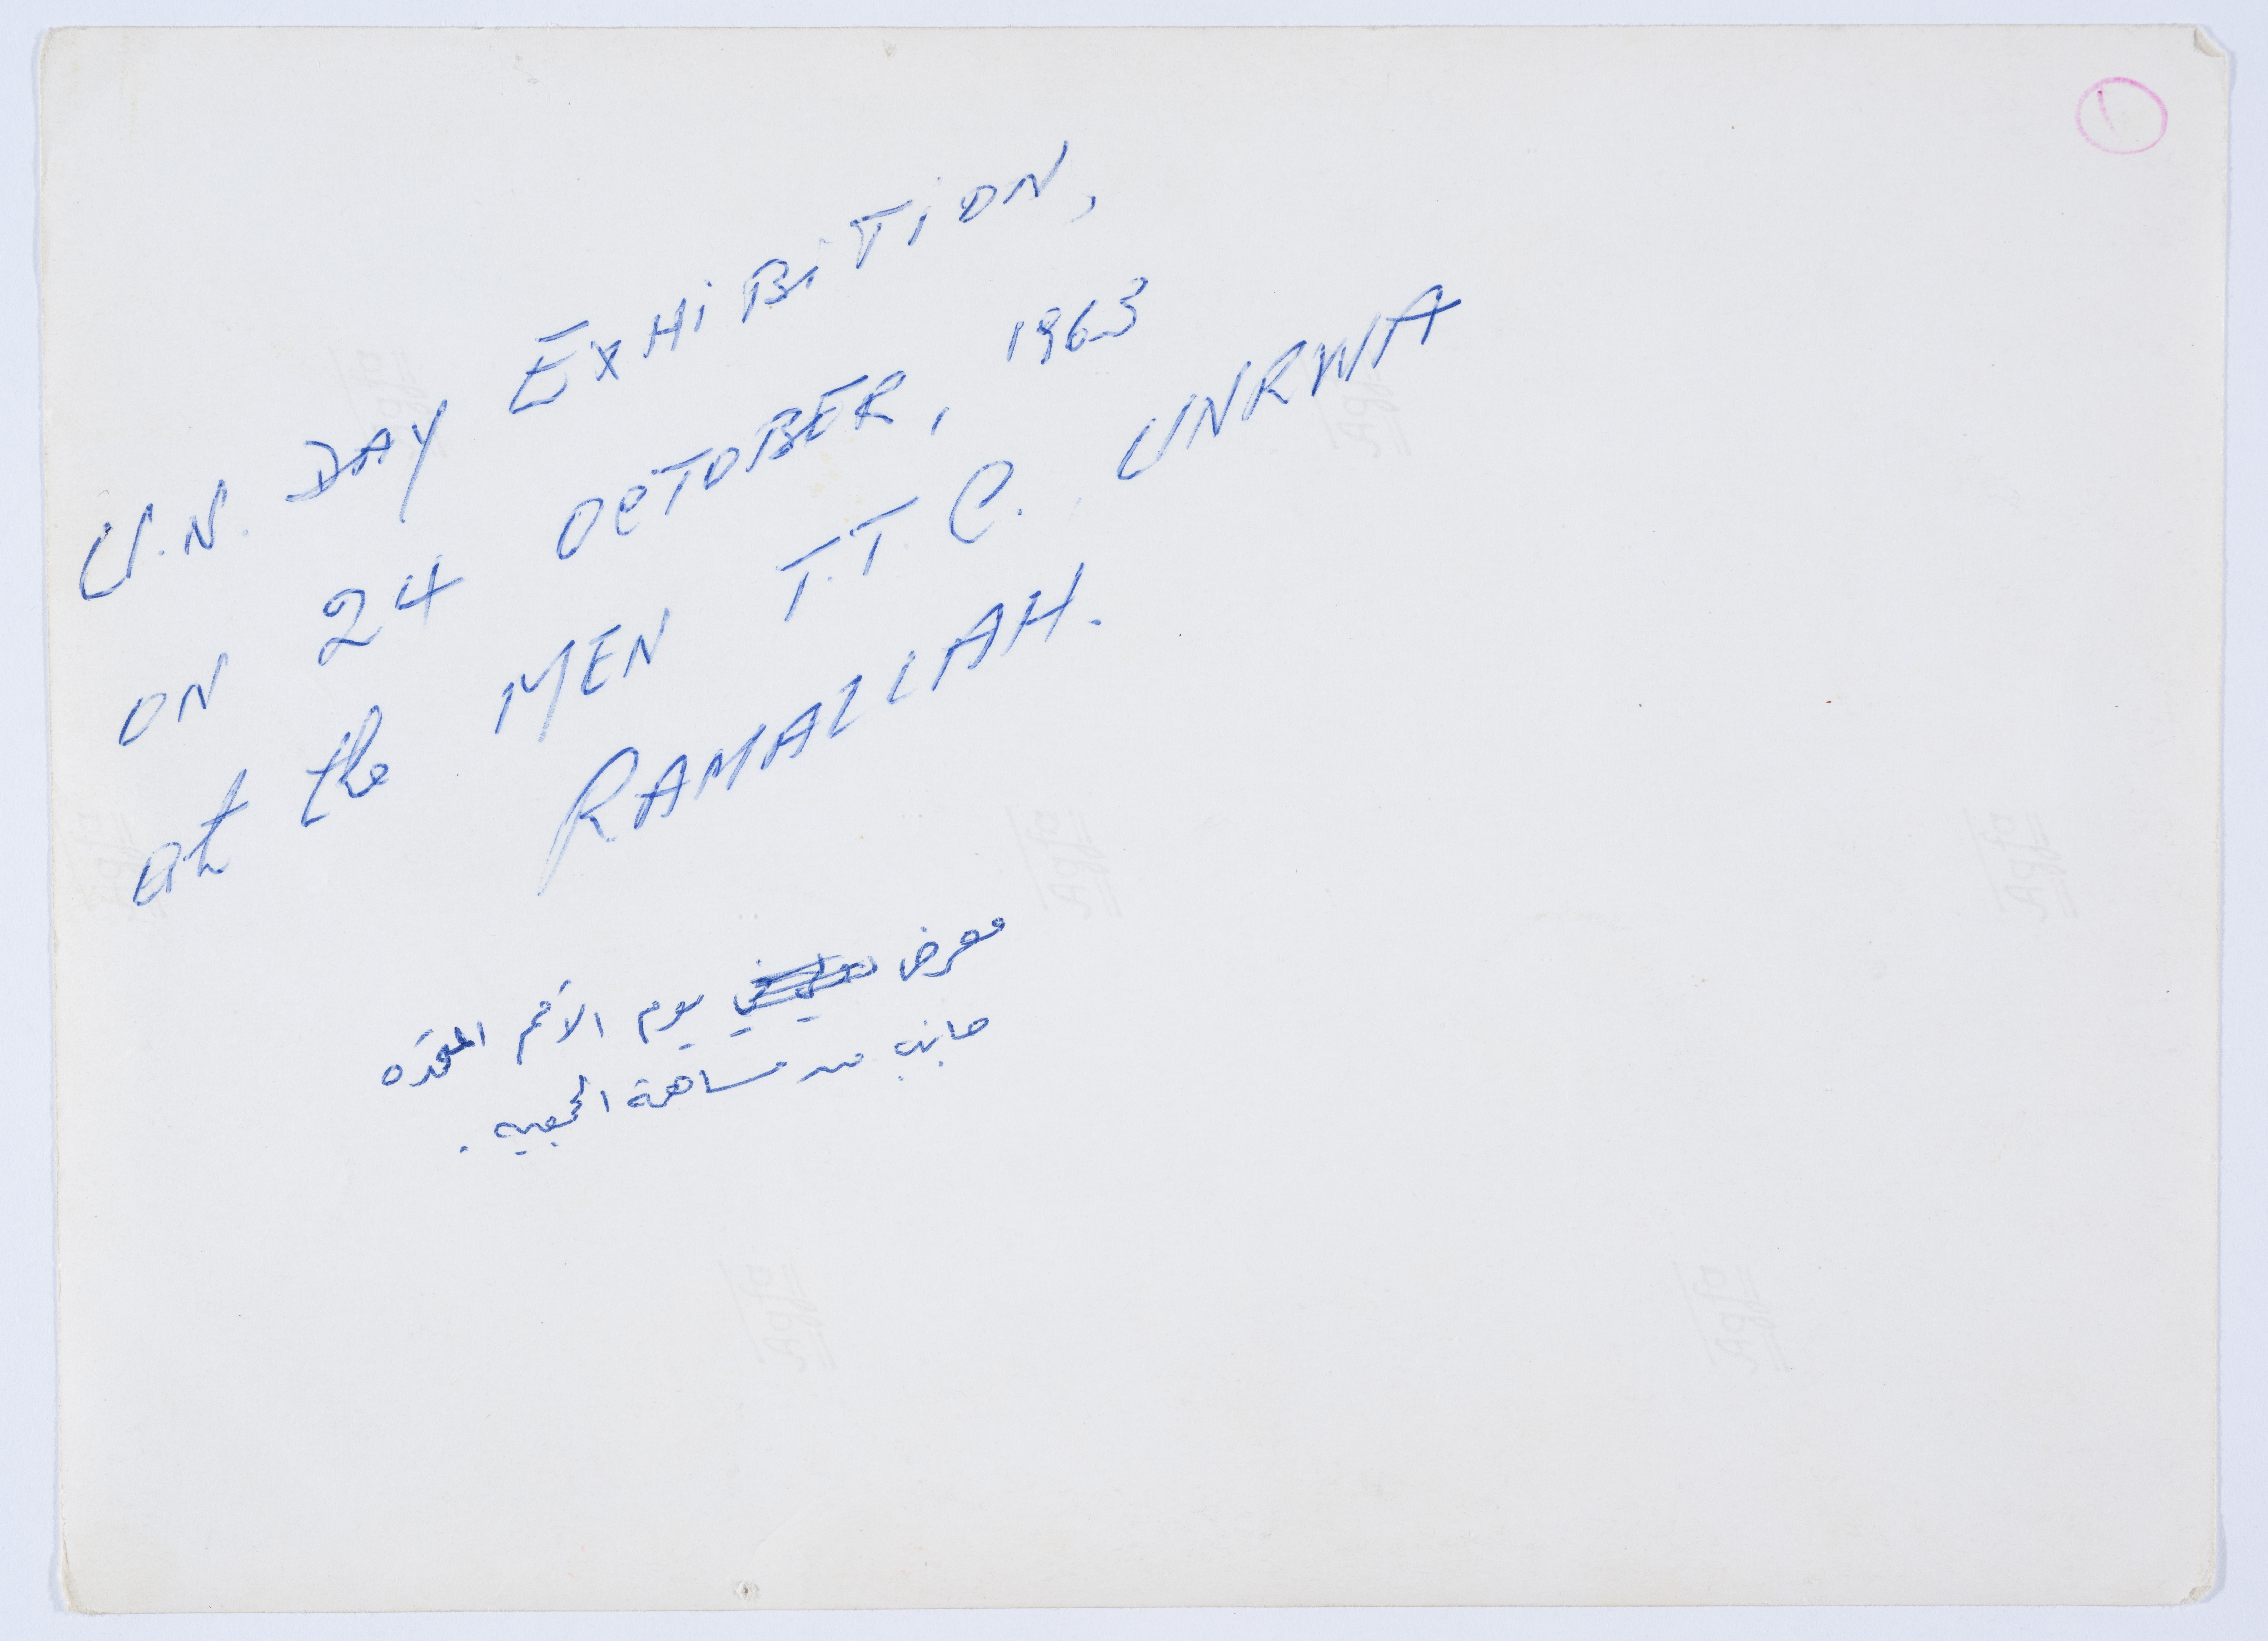 ١
U.N. DAY EXHiBiTiON,
ON 24 OCTOBER, 1963
at the MEN T.T.C. UNRWA
RAMALLAH.
معرض يوم الأمم المتحده
جانب من مساهمة الجمعيه .
Agfa
Agfa
Agfa
Agfa
Agfa
Agfa
Agfa